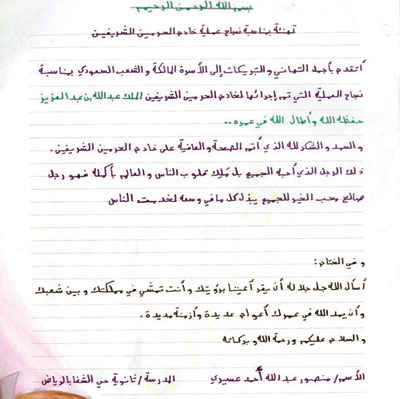 بسم الله الرحمن الرحيم
تهنئة بمناسبة نجاح عملية خادم الحرمين الشريفين
أتقدم بأجمل التهاني والتبريكات إلى الأسرة المالكة والشعب السعودي بمناسبة
نجاح العملية التي تم إجرائها لخادم الحرمين الشريفين الملك عبدالله بن عبدالعزيز
حفظه الله وأطال الله في عمره ..
و الحمد والشكر لله الذي أتم الصحة والعافية على خادم الحرمين الشريفين .
ذلك الرجل الذي أحبه الجميع بل ملك قلوب الناس والعالم بأكمله فهو رجل
صالح محب الخير للجميع يبذل كل ما في وسعه لخدمت الناس
و في الختام :
أسأل الله جل جلاله أن يقر أعيننا برؤيتك وأنت تمشي في مملكتك و بين شعبك
وأن يمد الله في عمرك أعوام عديدة وأزمنة مديدة .
و السلام عليكم ورحمة الله و بركاته
الأسم / منصور عبدالله أحمد عسيري المدرسة / ثانوية حي الشفا بالرياض